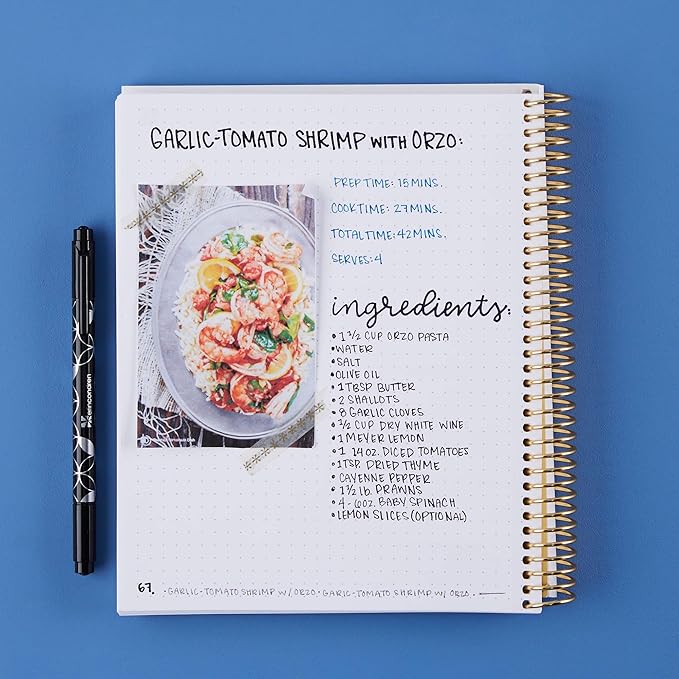 GARLIC-TOMATO SHRIMP WITH ORZO:
PREP TIME: 15 MINS.
COOK TIME: 27 MINS.
TOTAL TIME: 42 MINS.
SERVES: 4
ingredients:
• 1 ½ CUP ORZO PASTA
• WATER
• SALT
• OLIVE OIL
• 1 TBSP BUTTER
• 2 SHALLOTS
• 8 GARLIC CLOVES
• ½ CUP DRY WHITE WINE
• 1 MEYER LEMON
• 1 14 OZ. DICED TOMATOES
• 1 TSP. DRIED THYME
• CAYENNE PEPPER
• 1 ½ lb. PRAWNS
• 4-6 OZ. BABY SPINACH
• LEMON SLICES (OPTIONAL)
erincondren
67.
• GARLIC-TOMATO SHRIMP W/ ORZO • GARIC-TOMATO SHRIMP W/ ORZO •